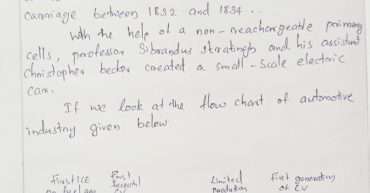 carriage between 1832 and 1834...
With the help of a non-rechargeable primary
cells, professor Sibrandus stratingh and his assistant
christopher becker created a small-scale electric
car.
If we look at the flow chart of automotive
industry given below
First ICE First Limited First generation
Successful production of EV
EV